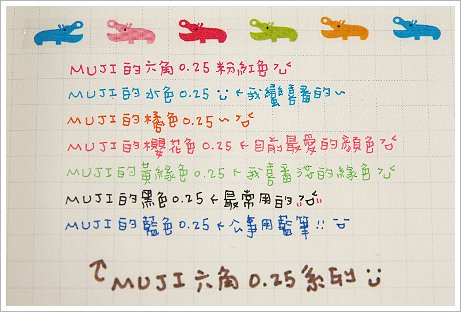 MUJI的六角0.25粉紅色
MUJI的水色0.25 ←我蠻喜番的~
MUJI的橘色0.25~
MUJI的櫻花色0.25←目前最愛的顏色
MUJI的黃綠色0.25←我喜番淺的綠色
MUJI的黑色0.25←最常用的
MUJI的藍色0.25←公事用藍筆!!
↑MUJI六角0.25系列